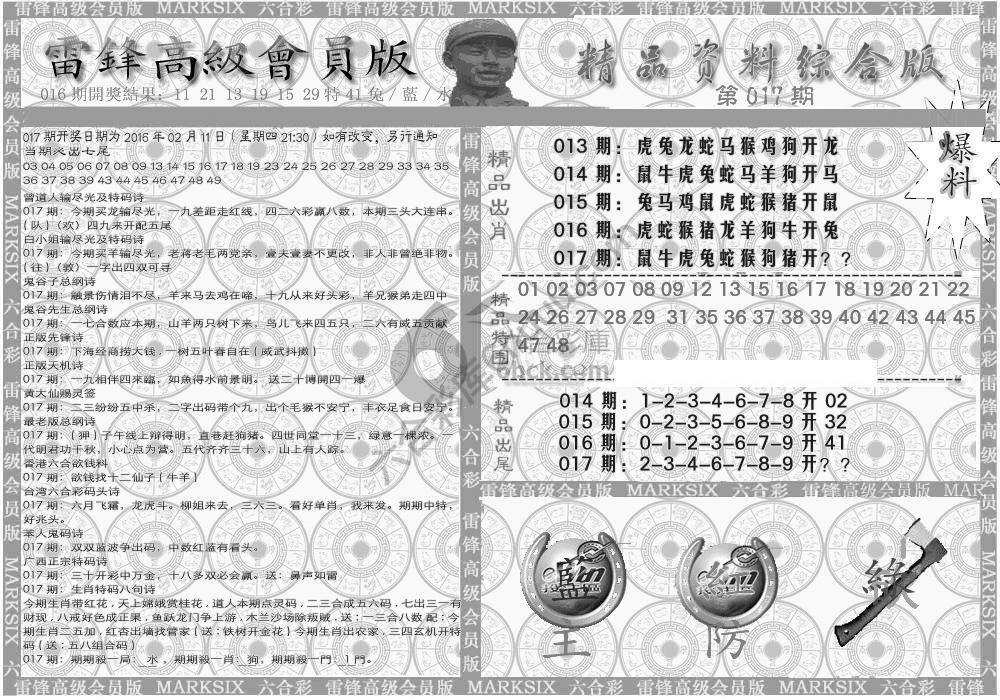 雷锋高级会员版 MARKSIX 六合彩 雷锋高级会员版 MARKSIX 六合彩 雷锋高级会员版 MARKSIX 六合彩 雷锋高级会员版
雷鋒高級會員版
016期開獎結果: 11 21 13 19 15 29特41兔/藍/水
精品资料综合版
第017期
爆料
017期开奖日期为2016年02月11日(星期四21:30)如有改变,另行通知
当期必出七尾
03 04 05 06 07 08 09 13 14 15 16 17 18 19 23 24 25 26 27 28 29 33 34 35
36 37 38 39 43 44 45 46 47 48 49
曾道人输尽光及特码诗
017期:今期买龙输尽光,一九差距走红线,四二六彩赢八数,本期三头大连串。
(队)(欢)四九来开配五尾
白小姐输尽光及特码诗
017期:今期买羊输尽光,老蒋老毛两党亲,壹夫壹妻不更改,非人非曾绝非物。
(往)(敦)一字出四双可寻
鬼谷子总纲诗
017期:融景伤情泪不尽,羊来马去鸡在啼,十九从来好头彩,羊兄猴弟走四中
鬼谷先生总纲诗
017期:一七合数应本期,山羊两只树下来,鸟儿飞来四五只,二六有威五贡献
正版先锋诗
017期:下海经商捞大钱,一树五叶春自在(威武抖擞)
正版天机诗
017期:一九相伴四來臨,如魚得水前景明。送二十博開四一爆
黄大仙赐灵签
017期:二三纷纷五中杀,二字出码带个九,出个毛猴不安宁,丰衣足食日安宁。
最老版总纲诗
017期:(狎)子午线上辩得明,直巷赶狗猪。四世同堂一十三,绿意一棵浓。一
代明君功千秋,小心点为营。五代齐齐三十六,山上有人踪。
香港六合欲钱料
017期:欲钱找十二仙子(牛羊)
台湾六合彩码头诗
017期:六月飞霜,龙虎斗。柳姐来去,三六三。看好单肖,我来发。期期中特,
好兆头。
苯人鬼码诗
017期:双双蓝波争出码,中数红蓝有看头。
广西正宗特码诗
017期:三十开彩中万金,十八多双必会赢。送:鼻声如雷
017期:生肖特码八句诗
今期生肖带红花,天上嫦娥赏桂花,道人本期点灵码,二三合成五六码,七出三一有
财现,八戒好色成正果,鱼跃龙门争上游,木兰沙场除叛贼,送:一三合八数 配:今
期生肖二五加,红杏出墙找管家(送:铁树开金花)今期生肖出农家,三四玄机开特
码(送:五八组合码)
017期:期期殺一局:水,期期殺一肖:狗,期期殺一門:1門。
精品出肖
013期:虎兔龙蛇马猴鸡狗开龙
014期:鼠牛虎兔蛇马羊狗开马
015期:兔马鸡鼠虎蛇猴猪开鼠
016期:虎蛇猴猪龙羊狗牛开兔
017期:鼠牛虎兔蛇猴狗猪开??
精品特围
01 02 03 07 08 09 12 13 15 17 18 19 20 21 22
24 26 27 28 29 31 35 36 37 38 39 40 42 43 44 45
47 48
精品出尾
014期:1-2-3-4-6-7-8开02
015期:0-2-3-5-6-7-9开32
016期:0-1-2-3-6-7-9开41
017期:2-3-4-6-7-8-9开??
雷锋高级会员版 MARKSIX 六合彩 雷锋高级会员版 MAR
主
防
雷锋高级会员版 MARKSIX 六合彩 雷锋高级会员版 MARKSIX 六合彩 雷锋高级会员版 MARKSIX 六合彩 雷锋高级会员版